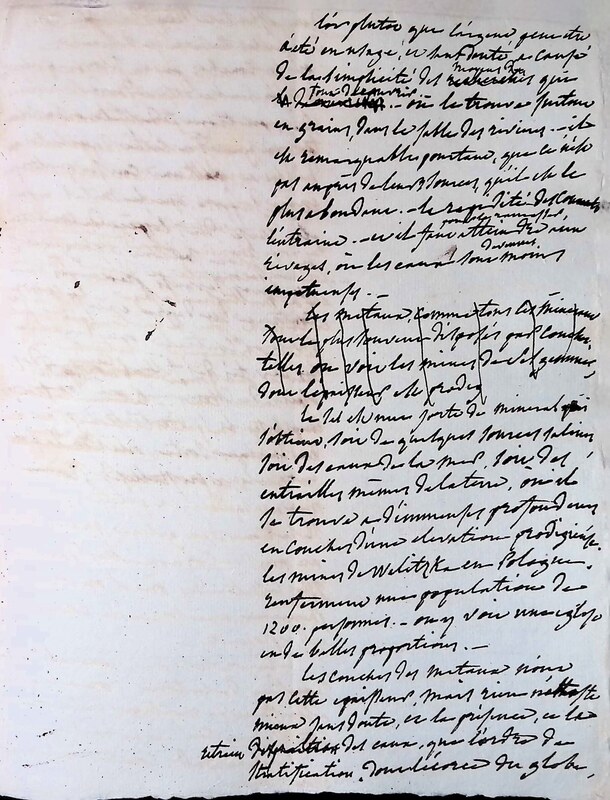 l'or plutot que l'argent peut etre
été en usage, et sans doute a cause
de la simplicité des moyens
pour decouvrir que
on le trouve surtout
en grains, dans le sable des rivieres. — il
est remarquable pourtant, que ce n'est
pas auprès de leurs sources, qu'il est le
plus abondant. — la rapidité des
l'entraine. — et il faut
rivages, où les eaux sont devenues moins
impetueuses. —
Les metaux, comme tous les mineraux
sont le plus souvent disposés par couches
telles on voit les mines de sel gemme,
dont l'epaisseur est prodig
le sel est une sorte de mineral qui
s'obtient, soit de quelques sources salines
soit des eaux de la mer, soit des
entrailles mêmes de la terre, où il
se trouve a d'immenses profondeurs
en couches d'une elevation prodigieuse.
les mines de Welitzka en Pologne,
renferment une population de
1200. personnes. — on y voit une eglise
de belles proportions. —
les couches des metaux n'ont
pas cette epaisseur, mais rien n'atteste
mieux sans doute, et la présence, et la
retraite des eaux, que l'ordre de
stratification, dont l'ecorce du globe,